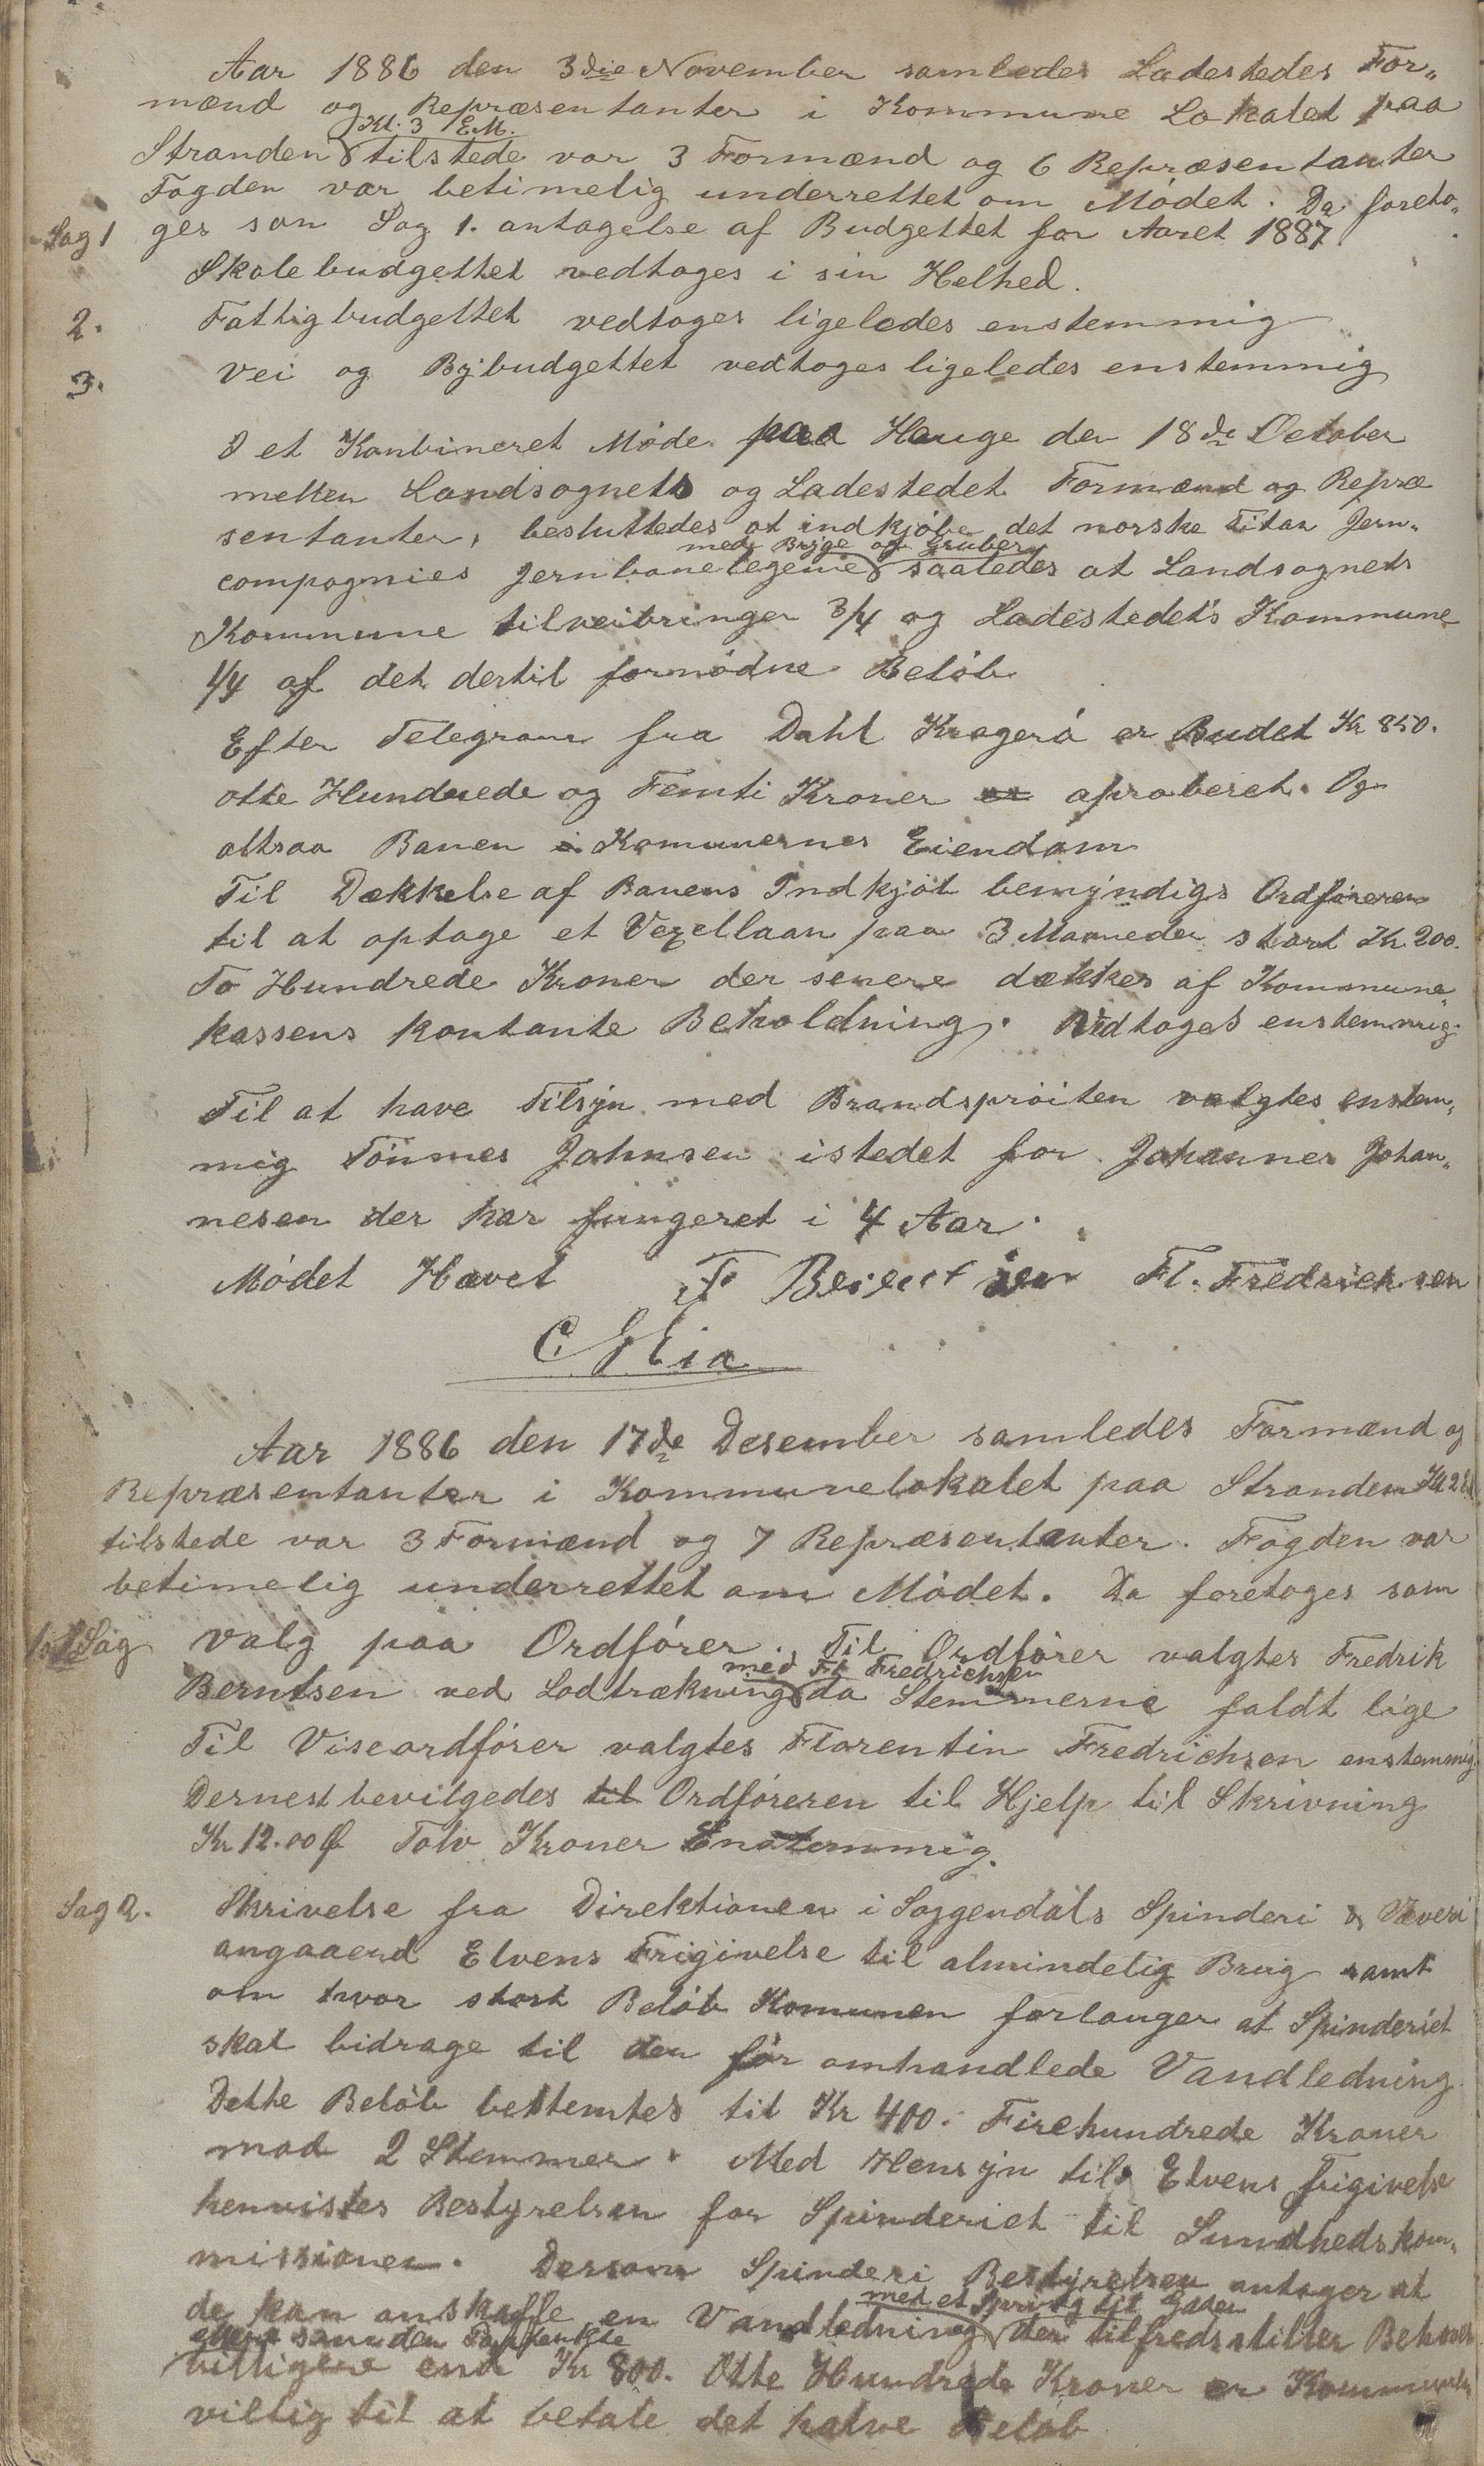 Aar 1886 den 3die November samledes Ladestedes For„
mænd og Repræsentanter i Kommune Lokalet paa
Kl. 3 EM.
Stranden tilstede var 3 Formænd og 6 Repræsentanter
Fogden var betimelig underrettet om Mødet. Da foreto„
Sag 1 ges som Sag 1. antagelse af Budgettet for Aaret 1887
Skolebudgettet vedtoges i sin Helhed.
2. Fattigbudgettet vedtoges ligeledes enstemmig
3. Vei og Bÿbudgettet vedtoges ligeledes enstemmig
I et Konbineret Møde paa Hauge den 18de October
mellen Landsognets og Ladestedet Formænd og Repræ
sentanter, besluttedes at indkjøbe det norske Titan Jern„
med Brÿge og Gruber
compagnies Jernbanelegeme saaledes at Landsognets
Kommune tilveibringer 3/4 og Ladestedet's Kommune
1/4 af det dertil fornødne Beløb
Efter Telegram fra Dahl Kragerø er Budet Kr 850.
otte Hundrede og Femti Kroner er aproberet. Og
altsaa Banen i Komunernes Eiendom
Til Dækkelse af Banens Indkjøb bemÿndigs Ordføreren
til at optage et Vexellaan paa 3 Maaneder stort Kr 200.
To Hundrede Kroner der senere dækkes af Kommune„
kassens kontante Beholdning. Vedtoges enstemmig.
Til at have Tilsÿn med Brandsprøiten valgtes enstem„
mig Tønnes Johnsen istedet for Johannes Johan„
nesen der har fungeret i 4 Aar.
Mødet Hævet F Berentsen Fl. Fredrichsen
C Eia
Aar 1886 den 17de Desember samledes Formænd og
Repræsentanter i Kommunelokalet paa Stranden Kl 2 EM
tilstede var 3 Formænd og 7 Repræsentanter. Fogden var
betimelig underrettet om Mødet. Da foretoges som
1ste Sag Valg paa Ordfører. Til Ordfører valgtes Fredrik
med Fl Fredrichsen
Berntsen ved Lodtrækning da Stemmerne faldt lige
Til Viseordfører valgtes Florentin Fredrichsen enstemmig.
Dernest bevilgedes til Ordføreren til Hjelp til Skrivning
Kr. 12.00 Ø Tolv Kroner Enstemmig.
Sag 2. Skrivelse fra Direktionen i Soggendals Spinderi & Væveri
angaaend Elvens Frigivelse til almindelig Brug samt
om hvor stort Beløb Komunen forlanger at Spinderiet
skal bidrage til den før omhandlede Vandledning.
Dette Beløb bestemtes til Kr 400. Firehundrede Kroner
mod 2 Stemmer. Med Hensÿn til Elvens frigivelse
henvistes Bestyrelsen for Spinderiet til Sundhedskom„
missionen. Dersom Spinderi Bestÿrelsen antager at
med et Spring til Gaden
de kan anskaffe en Vandledning der tilfredsstiller Behovet
som den Paatænkte
billigere end Kr 800. Otte Hundrede Kroner er Kommunen
villig til at betale det halve Beløb